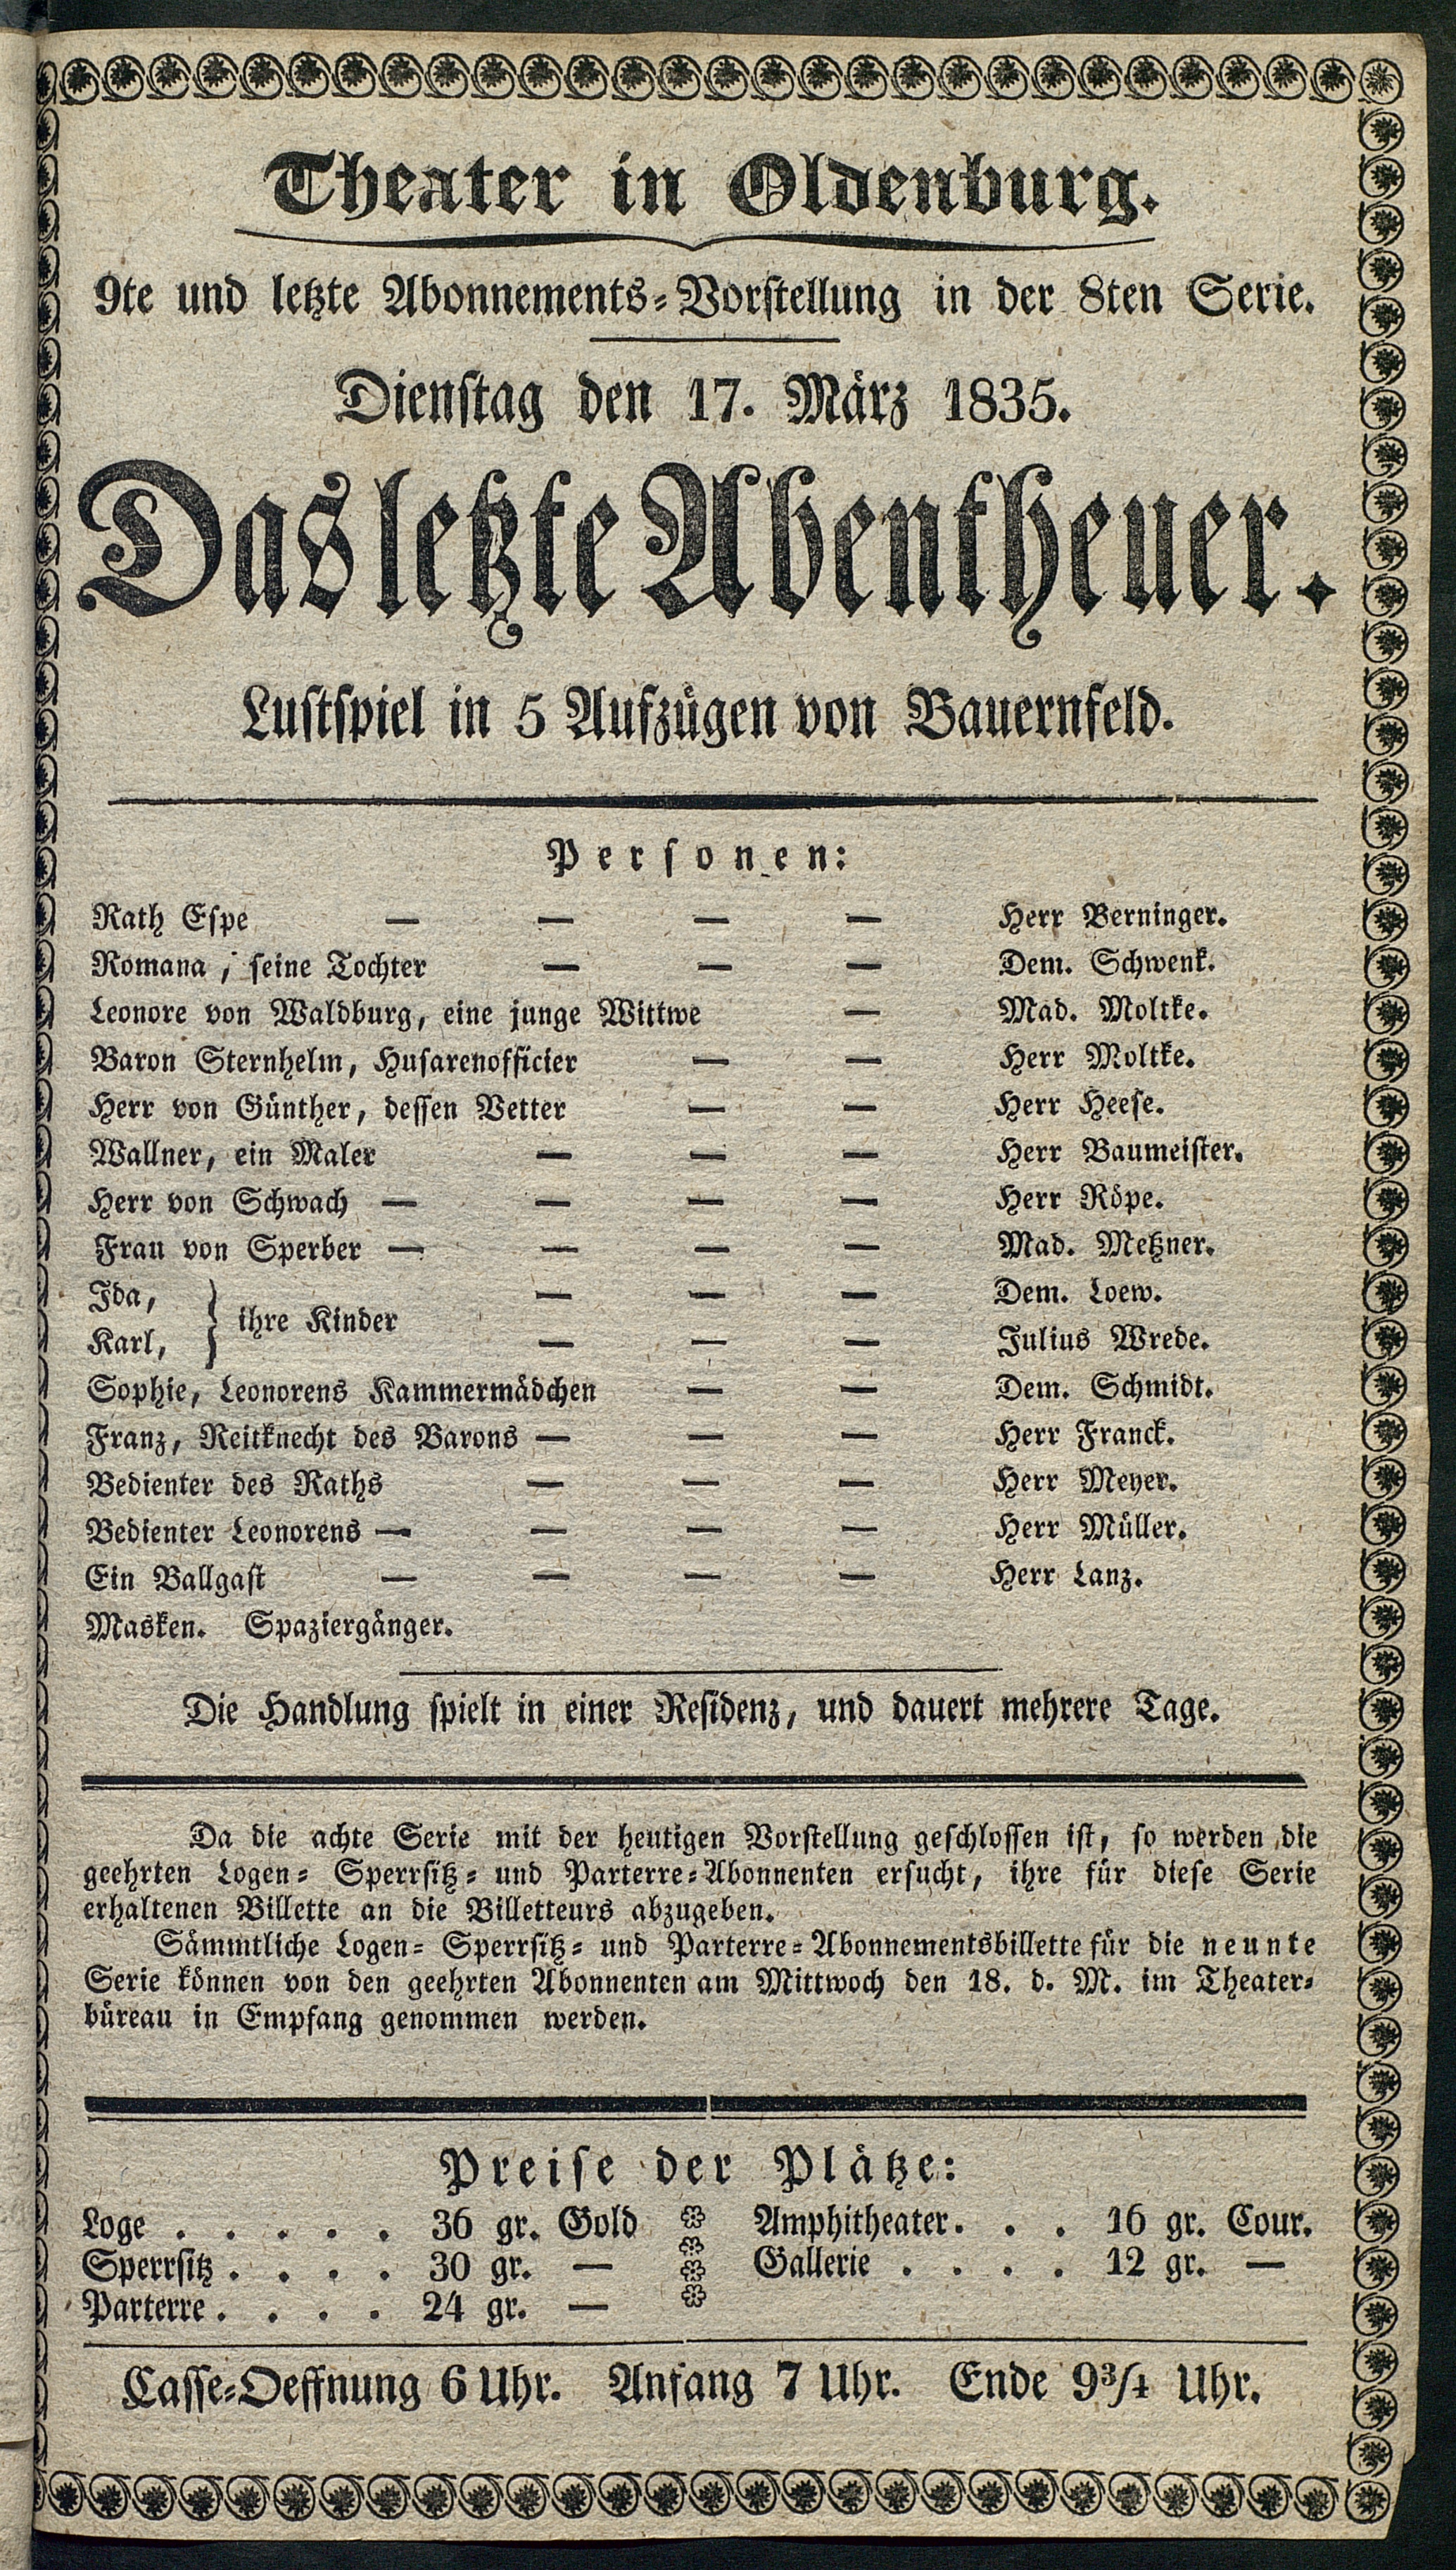 Theater in Oldenburg.
9te und letzte Abonnements-Vorstellung in der 8ten Serie.
Dienstag den 17. März 1835.
Das letzte Abentheuer.
Lustspiel in 5 Aufzügen von Bauernfeld.
Personen:
Rath Espe — — — — Herr Berninger.
Romana, seine Tochter — — — Dem. Schwenk.
Leonore von Waldburg, eine junge Wittwe — Mad. Moltke.
Baron Sternhelm, Husarenofficier — — Herr Moltke.
Herr von Günther, dessen Vetter — — Herr Heese.
Wallner, ein Maler — — — Herr Baumeister.
Herr von Schwach — — — — Herr Röpe.
Frau von Sperber — — — — Mad. Metzner.
Ida, — — — Dem. Loew.
} ihre Kinder
Karl, — — — Julius Wrede.
Sophie, Leonorens Kammermädchen — — Dem. Schmidt.
Franz, Reitknecht des Barons — — — Herr Franck.
Bedienter des Raths — — — Herr Meyer.
Bedienter Leonorens — — — — Herr Müller.
Ein Ballgast — — — — Herr Lanz.
Masken. Spaziergänger.
Die Handlung spielt in einer Residenz, und dauert mehrere Tage.
Da die achte Serie mit der heutigen Vorstellung geschlossen ist, so werden die
geehrten Logen- Sperrsitz- und Parterre-Abonnenten ersucht, ihre für diese Serie
erhaltenen Billette an die Billetteurs abzugeben.
Sämmtliche Logen- Sperrsitz- und Parterre-Abonnementsbillette für die neunte
Serie können von den geehrten Abonnenten am Mittwoch den 18. d. M. im Theater-
büreau in Empfang genommen werden.
Preise der Plätze:
Loge . . . . . 36 gr. Gold Amphitheater. . . 16 gr. Cour.
Sperrsitz . . . . 30 gr. — Gallerie . . . . 12 gr. —
Parterre . . . . 24 gr. —
Casse-Oeffnung 6 Uhr. Anfang 7 Uhr. Ende 9¾ Uhr.